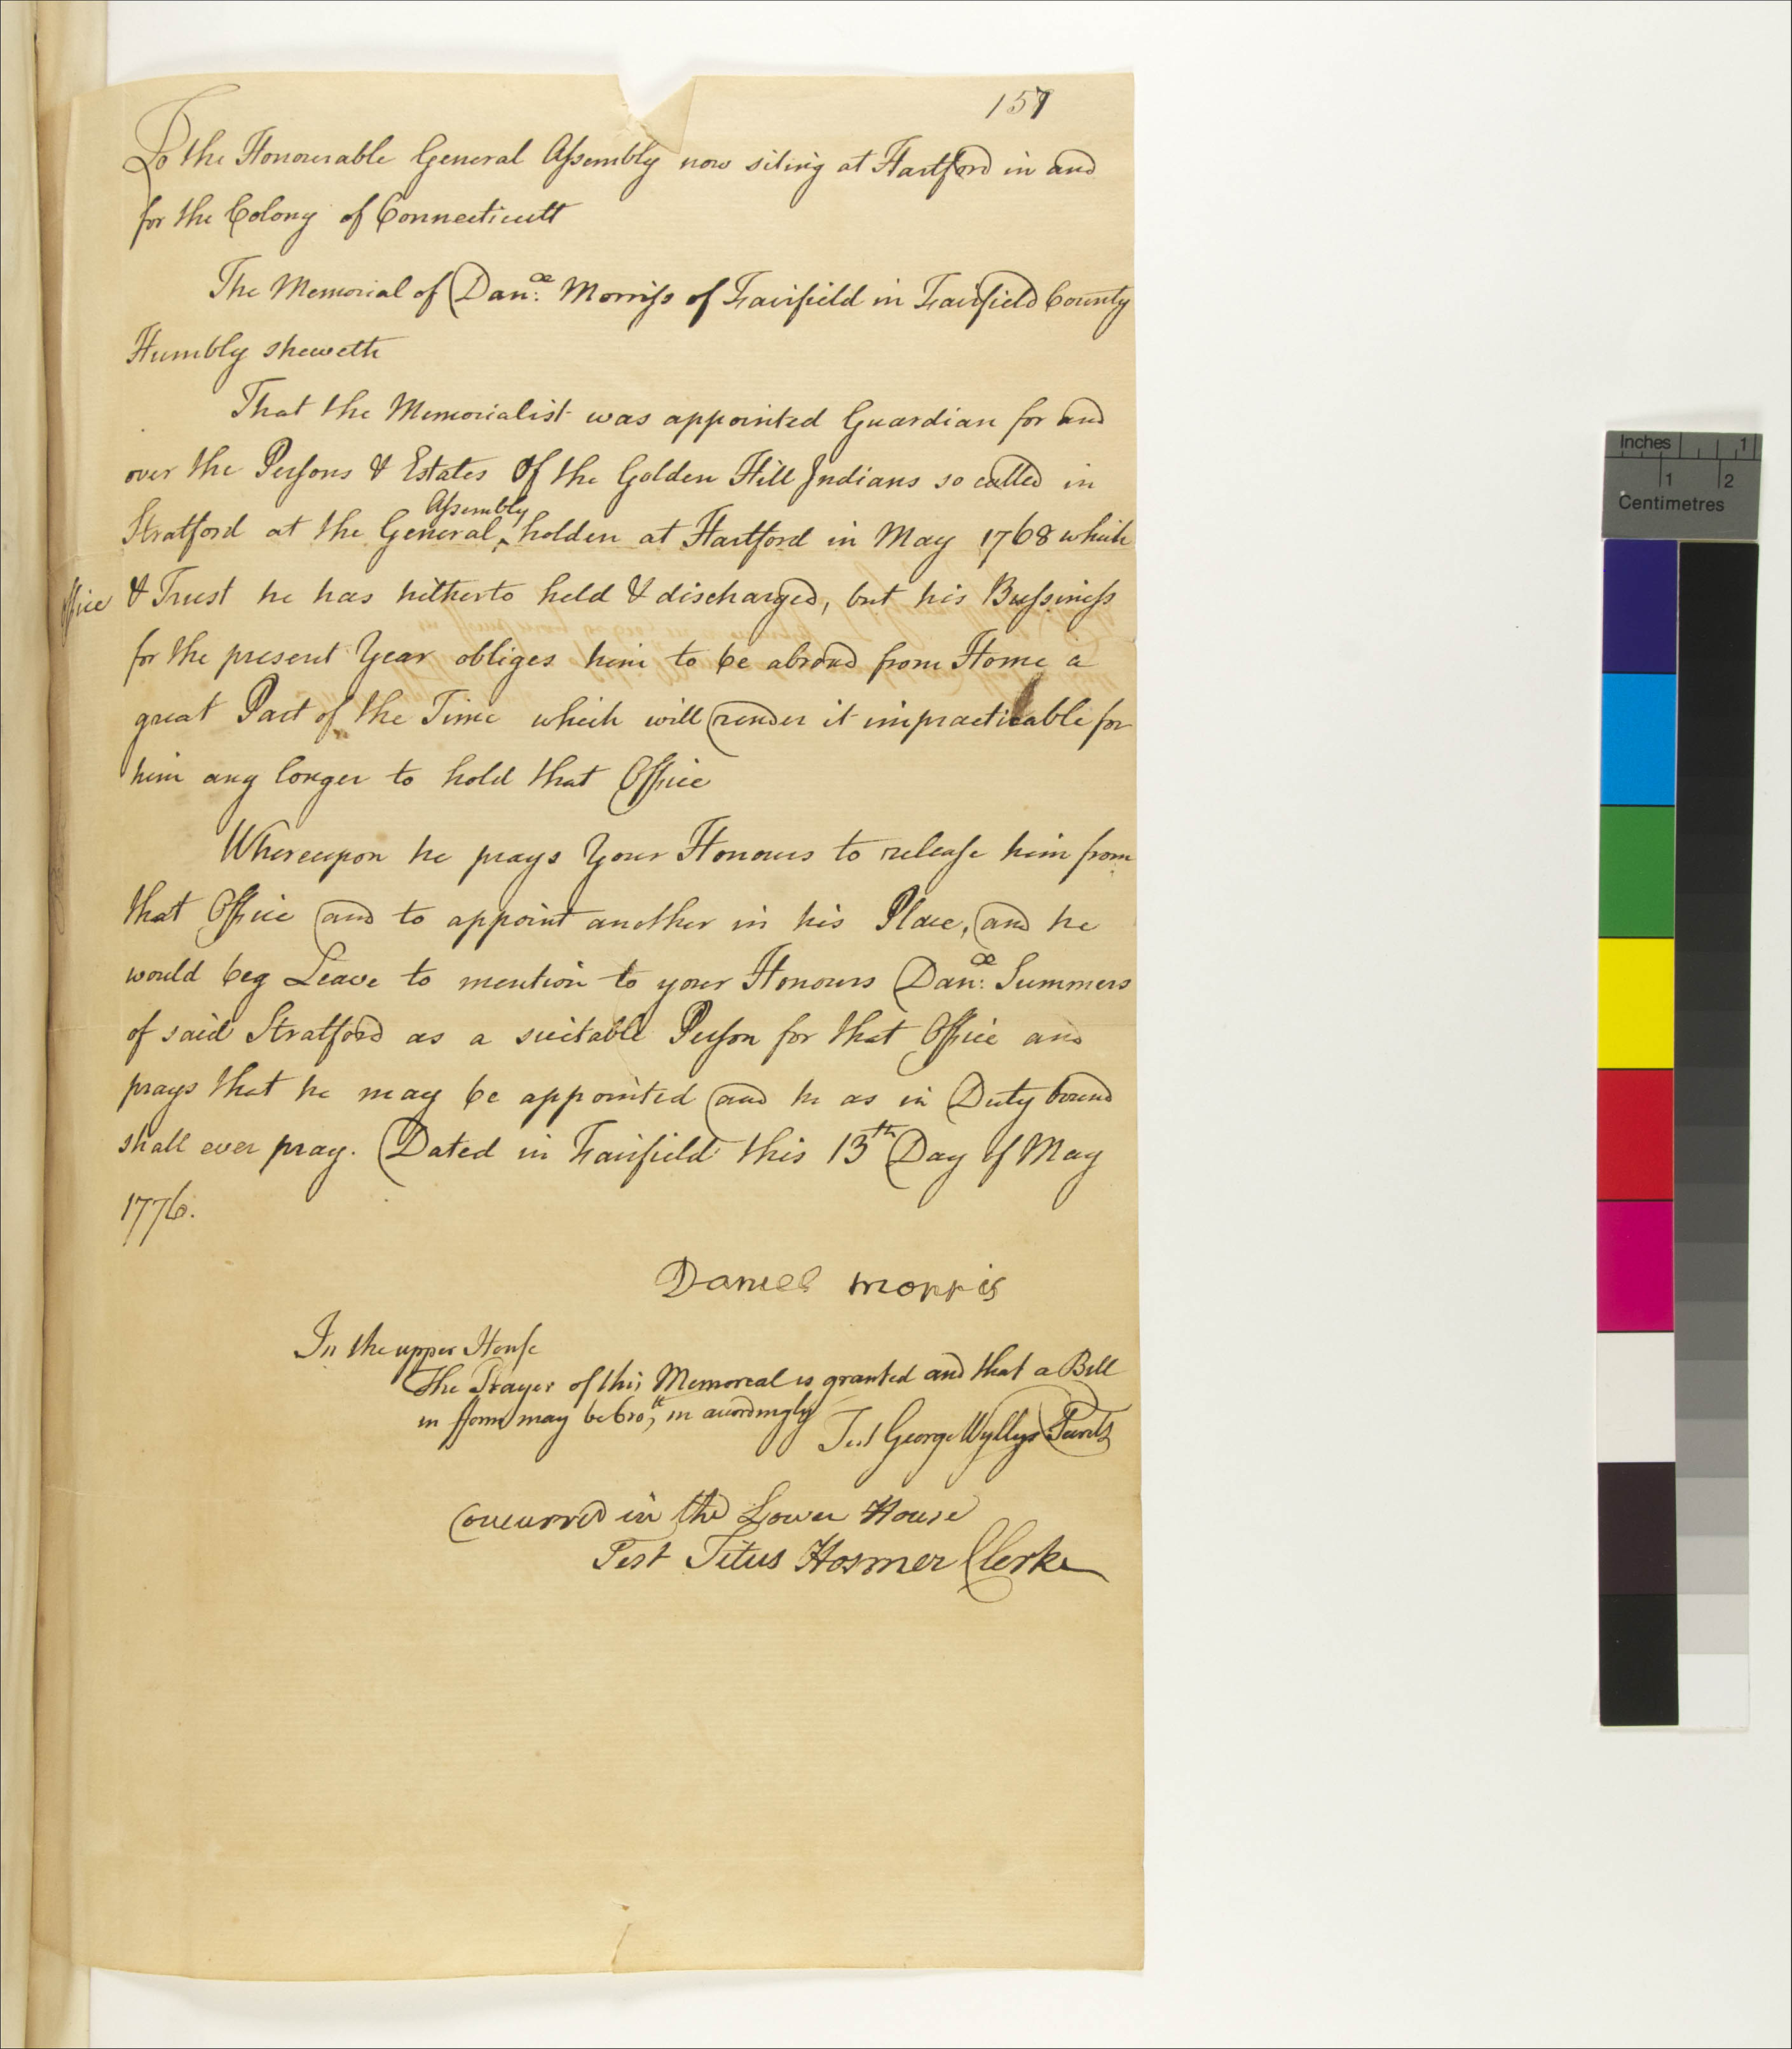 157
To the Honourable General Assembly now siting at Hartford in and
for the Colony of Connecticutt
The Memorial of Danll. Morriss of Fairfield in Fairfield County
Humbly sheweth
That the Memorialist was appointed Guardian for and
over the Persons & Estates Of the Golden Hill Indians so called in
Assembly
Stratford at the General ‸ holden at Hartford in May 1768 which
office & Trust he has hitherto held & discharged, but his Bussiness
for the present Year obliges him to be abroad from Home a
great Part of the Time which will render it impracticable for
him any longer to hold that Office
Whereupon he prays Your Honours to release him from
that Office and to appoint another in his Place, and he
would beg Leave to mention to your Honours Danll. Summers
of said Stratford as a suitable Person for that Office and
prays that he may be appointed and he as in Duty bound
shall ever pray. Dated in Fairfield this 13th Day of May
1776.
Daniel morris
In the upper House
The Prayer of this Memoreal is granted and that a Bill
in fform may be bro,t in accordingly
Test George Wyllys Secretz
Concurred in the Lower House
Test Titus Hosmer Clerke
Inches 1
1 2
Centimetres